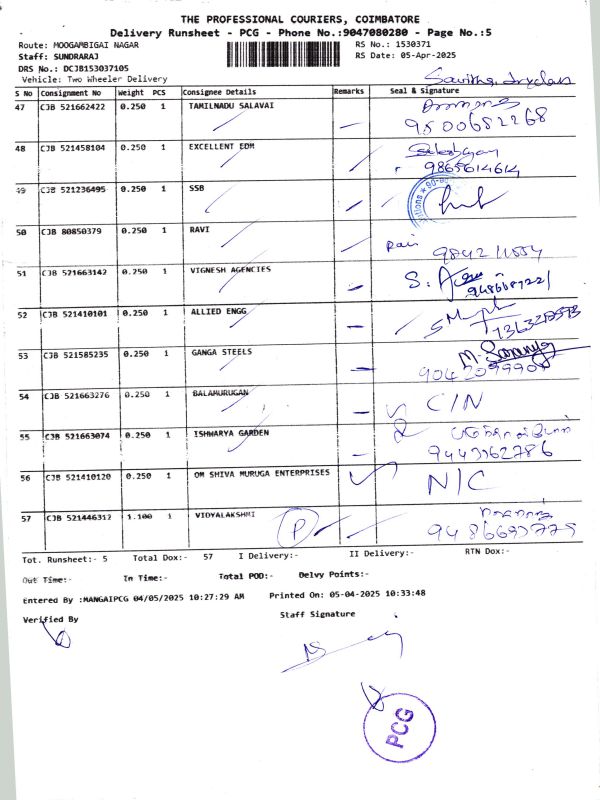 THE PROFESSIONAL COURIERS, COIMBATORE
Delivery Runsheet - PCG - Phone No.:9047080280 - Page No.:5
Route: MOOGAMBIGAI NAGAR RS No.: 1530371
Staff: SUNDRARAJ RS Date: 05-Apr-2025
DRS No.: DCJB153037105
Vehicle: Two Wheeler Delivery
S No Consignment No Weight PCS Consignee Details Remarks Seal & Signature
47 CJB 521662422 0.250 1 TAMILNADU SALAVAI
9500682268
48 CJB 521458104 0.250 1 EXCELLENT EDM
9865614614
49 CJB 521236495 0.250 1 SSB
50 CJB 80850379 0.250 1 RAVI
Ravi
51 CJB 521663142 0.250 1 VIGNESH AGENCIES
52 CJB 521410101 0.250 1 ALLIED ENGG
53 CJB 521585235 0.250 1 GANGA STEELS
54 CJB 521663276 0.250 1 BALAMURUGAN C/N
55 CJB 521663074 0.250 1 ISHWARYA GARDEN
9443162786
56 CJB 521410120 0.250 1 OM SHIVA MURUGA ENTERPRISES N/C
57 CJB 521446312 1.100 1 VIDYALAKSHMI P
Tot. Runsheet:- 5 Total Dox:- 57 I Delivery:- II Delivery:- RTN Dox:-
Out Time:- In Time:- Total POD:- Delvy Points:-
Entered By :MANGAIPCG 04/05/2025 10:27:29 AM Printed On: 05-04-2025 10:33:48
Verified By Staff Signature
PCG